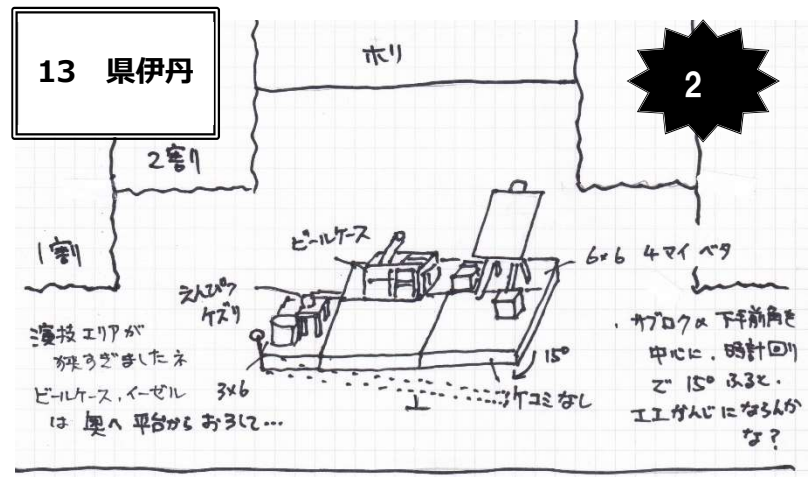 13 県伊丹
2
ホリ
2割
1割
ビールケース
えんぴつ
ケズリ
6×6 4マイ ベタ
演技エリアが
狭すぎましたネ
ビールケース、イーゼル
は 奥へ 平台から おろして…
3×6
15°
ケコミなし
・サブロクの 下手前角を
中心に、時計回り
で 15° ふると、
エエかんじにならんか
な?